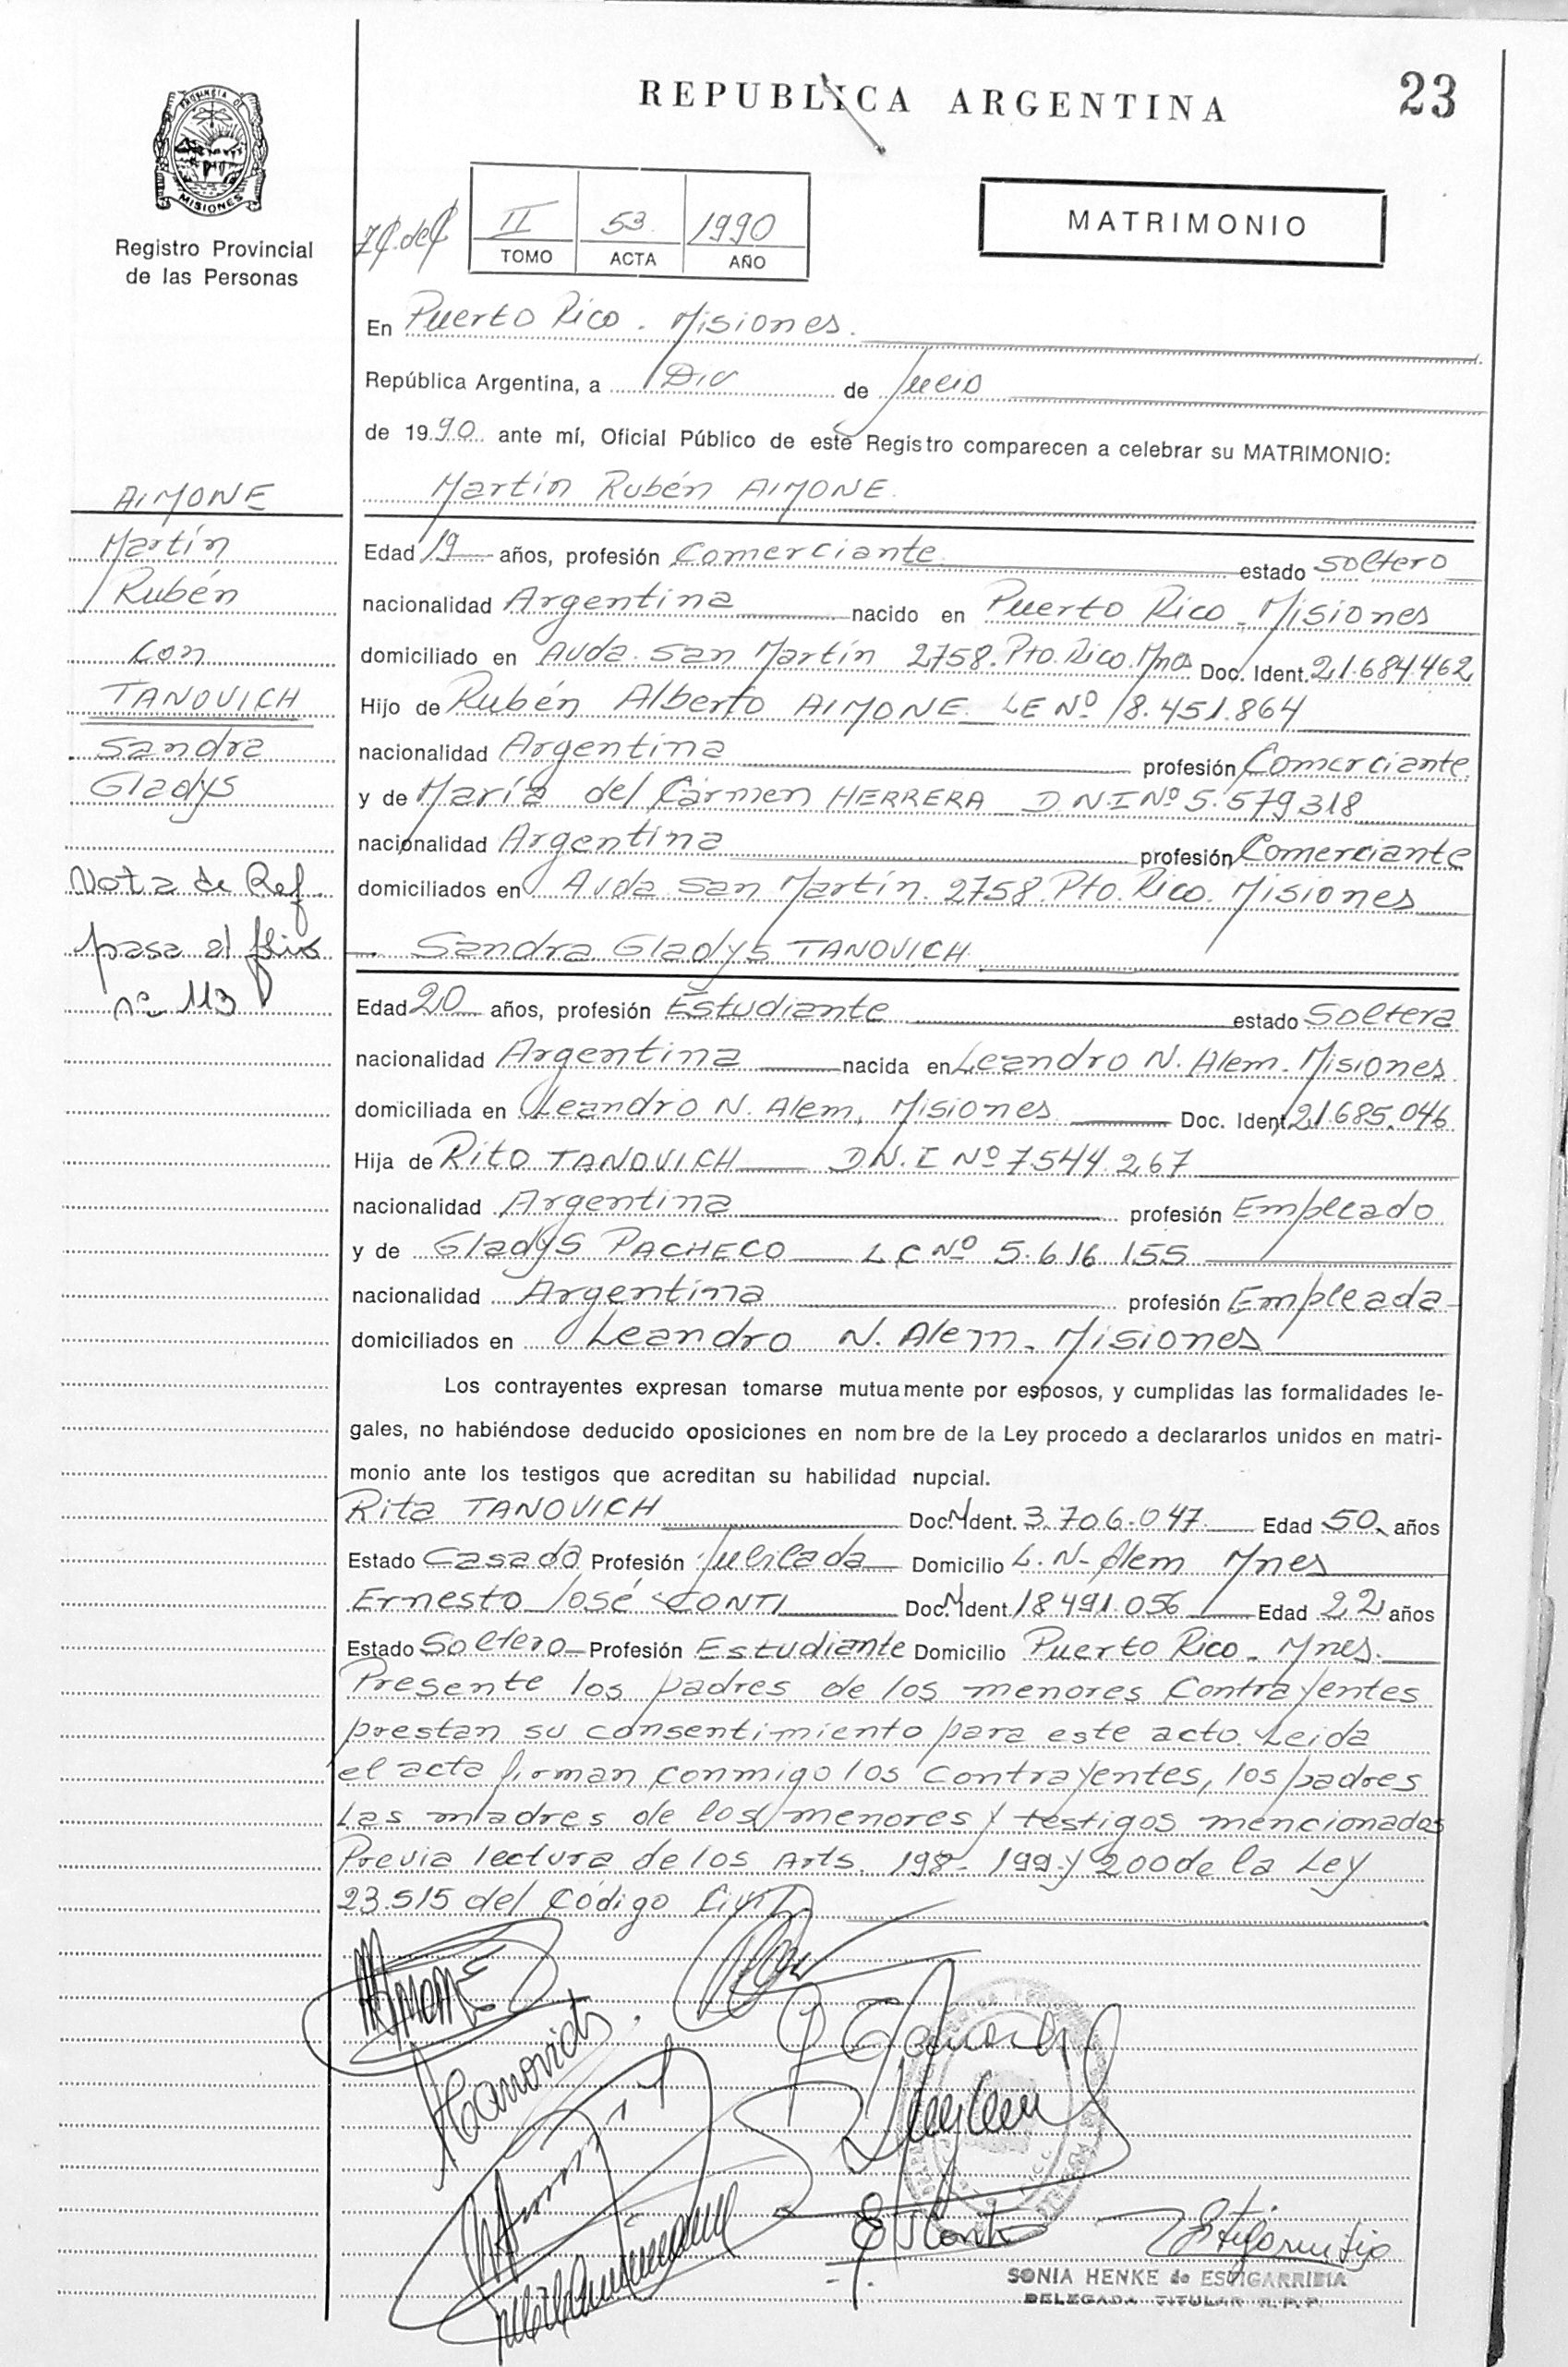 REPUBLICA ARGENTINA
23
PROVINCIA DE
MISIONES
Registro Provincial
de las Personas
II 53 1990
TOMO ACTA AÑO
MATRIMONIO
En Puerto Rico. Misiones.
República Argentina, a de Julio
de 1990 ante mí, Oficial Público de este Registro comparecen a celebrar su MATRIMONIO:
AIMONE
Martín
Rubén
con
TANOVICH
Sandra
Gladys
Nota de Ref.
pasa al folio
nº 113
Martín Rubén AIMONE
Edad 19 años, profesión Comerciante estado soltero
nacionalidad Argentina nacido en Puerto Rico - Misiones
domiciliado en Avda. San Martín 2758. Pto. Rico. Mnes Doc. Ident. 21.684.462
Hijo de Rubén Alberto AIMONE LE Nº 8.451.864
nacionalidad Argentina profesión Comerciante
y de María del Cármen HERRERA D.N.I Nº 5.579318
nacionalidad Argentina profesión Comerciante
domiciliados en Avda. San Martín. 2758. Pto. Rico. Misiones
Sandra Gladys TANOVICH
Edad 20 años, profesión Estudiante estado Soltera
nacionalidad Argentina nacida en Leandro N. Alem - Misiones
domiciliada en Leandro N. Alem, Misiones Doc. Ident. 21.685.046
Hija de Rito TANOVICH D.N.I Nº 7.544.267
nacionalidad Argentina profesión Empleado
y de Gladys PACHECO L C Nº 5.616.155
nacionalidad Argentina profesión Empleada
domiciliados en Leandro N. Alem - Misiones
Los contrayentes expresan tomarse mutuamente por esposos, y cumplidas las formalidades le-
gales, no habiéndose deducido oposiciones en nombre de la Ley procedo a declararlos unidos en matri-
monio ante los testigos que acreditan su habilidad nupcial.
Rita TANOVICH Doc. Ident. 3.706.047 Edad 50 años
Estado Casada Profesión Jubilada Domicilio L. N. Alem Mnes
Ernesto José CONTI Doc. Ident. 18491.056 Edad 22 años
Estado Soltero Profesión Estudiante Domicilio Puerto Rico - Mnes.
Presente los padres de los menores Contrayentes
prestan su consentimiento para este acto. Leida
el acta firman conmigo los Contrayentes, los padres
Las madres de los menores y testigos mencionados
Previa lectura de los Arts. 198 - 199 y 200 de la Ley
23.515 del Código Civil
SONIA HENKE de ESTIGARRIBIA
DELEGADA TITULAR R.P.P.